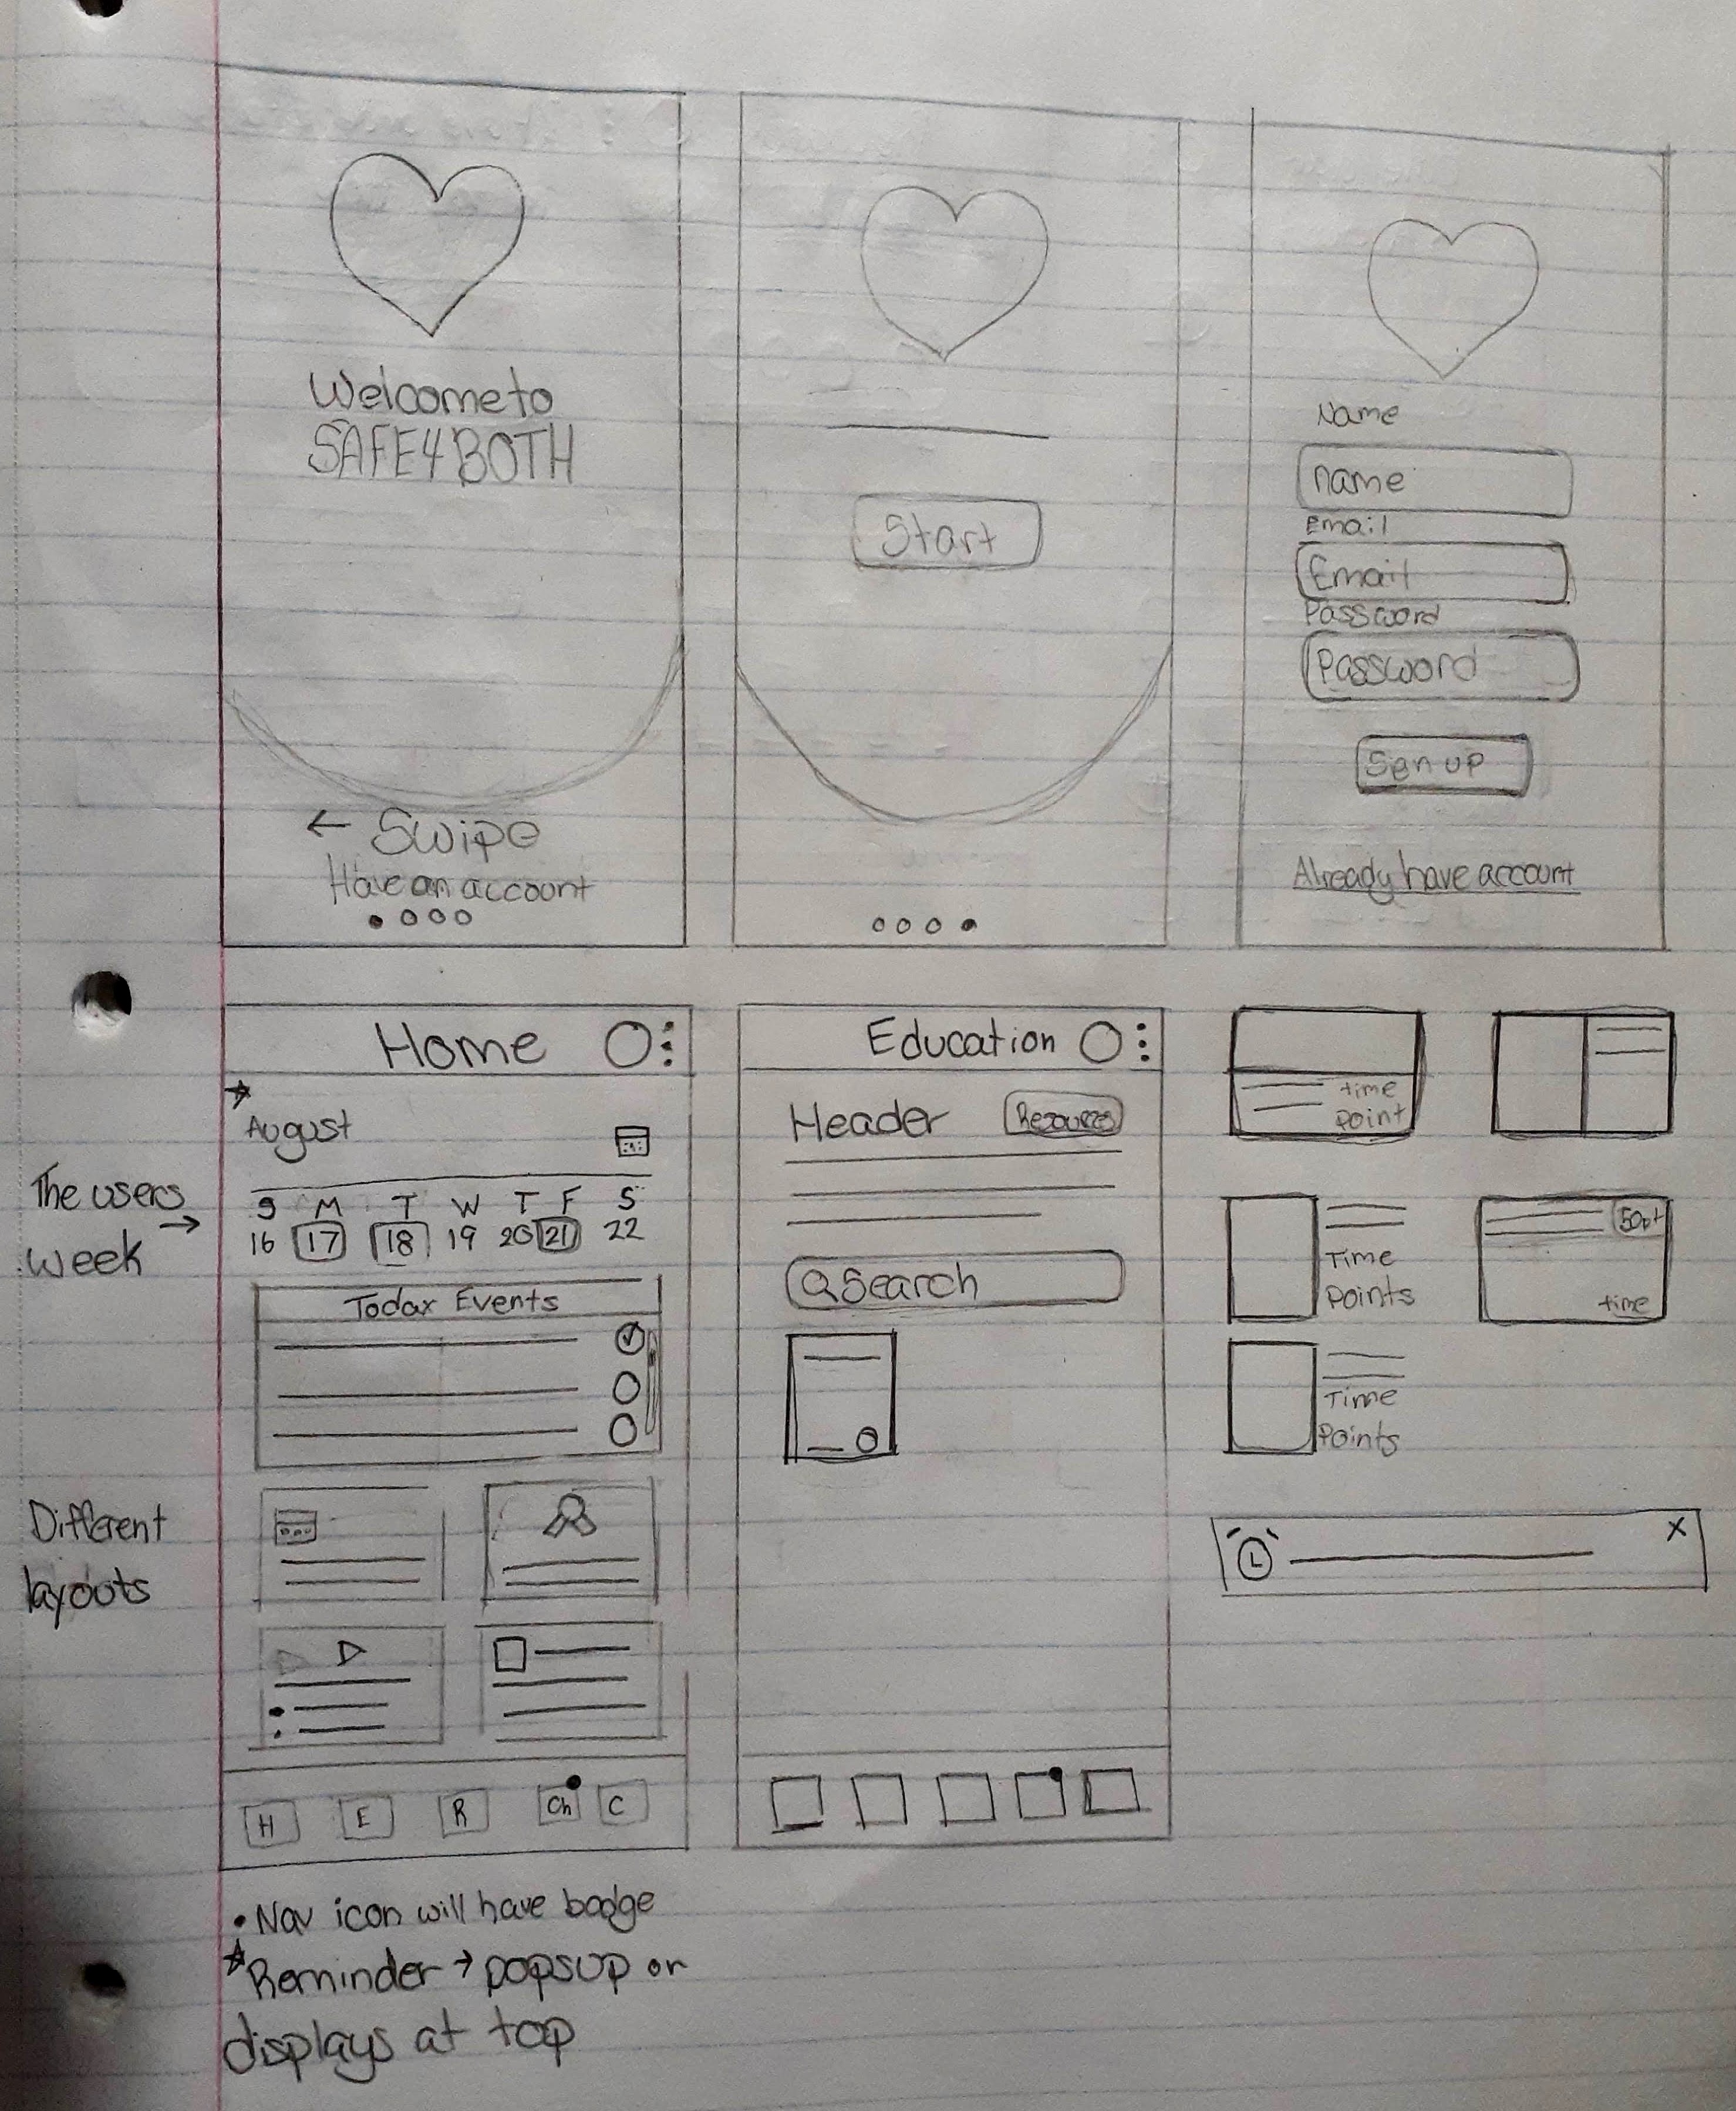 Welcome to
SAFE4BOTH
← Swipe
Have an account
Start
Name
name
Email
Email
Password
Password
Sign up
Already have account
Home
August
The users
week →
S M T W T F S
16 17 18 19 20 21 22
Today Events
Different
layouts
H E R Ch C
Education
Header
Resources
Search
time
point
Time
Points
50pt
time
Time
Points
X
• Nav icon will have badge
Reminder → popsup or
displays at top